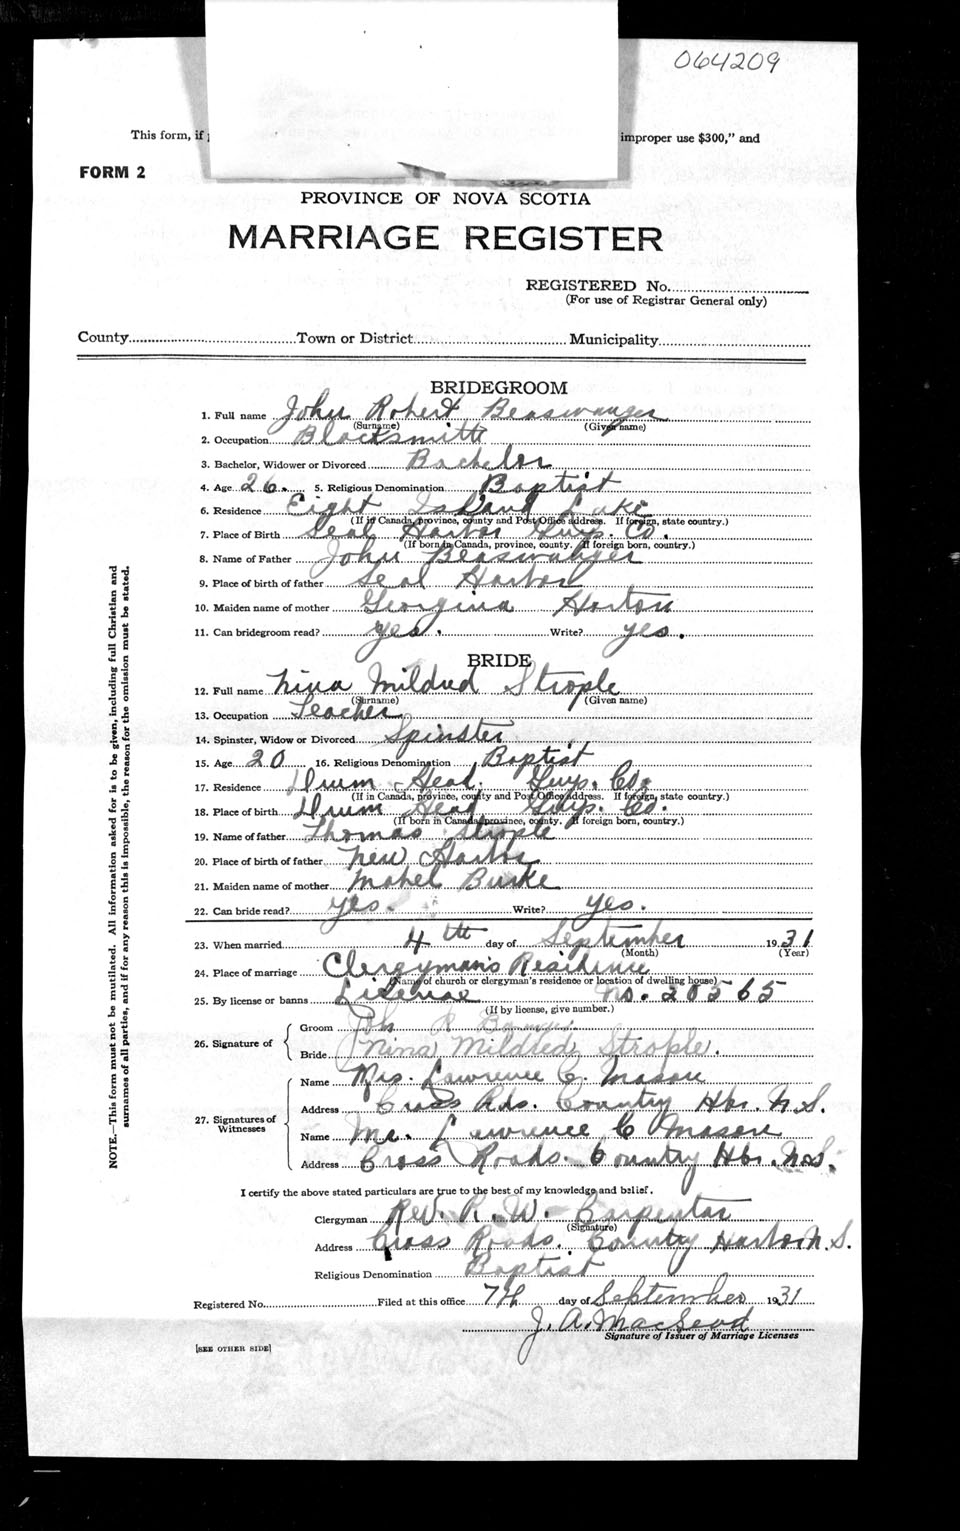 064209
This form, if improper use $300," and
FORM 2
PROVINCE OF NOVA SCOTIA
MARRIAGE REGISTER
REGISTERED No.
(For use of Registrar General only)
County Town or District Municipality
BRIDEGROOM
1. Full name John Robert Beaswanger
(Surname) (Given name)
2. Occupation Blacksmith
3. Bachelor, Widower or Divorced Bachelor
4. Age 26. 5. Religious Denomination Baptist
6. Residence Eight Island Lake
(If in Canada, province, county and Post Office address. If foreign, state country.)
7. Place of Birth Seal Harbor Guys. Co.
(If born in Canada, province, county. If foreign born, country.)
8. Name of Father John Beaswanger
9. Place of birth of father Seal Harbor
10. Maiden name of mother Georgina Horton
11. Can bridegroom read? yes. Write? yes.
BRIDE
12. Full name Nina Mildred Strople
(Surname) (Given name)
13. Occupation Teacher
14. Spinster, Widow or Divorced Spinster
15. Age 20 16. Religious Denomination Baptist
17. Residence Drum Head. Guys. Co.
(If in Canada, province, county and Post Office Address. If foreign, state country.)
18. Place of birth Drum Head Guys. Co.
(If born in Canada, province, county. If foreign born, country.)
19. Name of father Thomas Strople
20. Place of birth of father New Harbor
21. Maiden name of mother Mabel Burke
22. Can bride read? yes. Write? yes.
23. When married 4th day of September 1931
(Month) (Year)
24. Place of marriage Clergyman's Residence
(Name of church or clergyman's residence or location of dwelling house)
25. By license or banns License No. 20565
(If by license, give number.)
26. Signature of
Groom John R
Bride Nina Mildred Strople.
27. Signatures of Witnesses
Name Mrs. Lawrence C. Mason
Address Cross Rds. Country Hbr. N.S.
Name Mr. Lawrence C Mason
Address Cross Roads. Country Hbr. N.S.
I certify the above stated particulars are true to the best of my knowledge and belief.
Clergyman Rev. R. W. Carpenter
(Signature)
Address Cross Roads. Country Harbor N.S.
Religious Denomination Baptist
Registered No. Filed at this office 7th day of September 1931
J. A. MacLeod
Signature of Issuer of Marriage Licenses
[SEE OTHER SIDE]
NOTE.—This form must not be mutilated. All information asked for is to be given, including full Christian and
surnames of all parties, and if for any reason this is impossible, the reason for the omission must be stated.